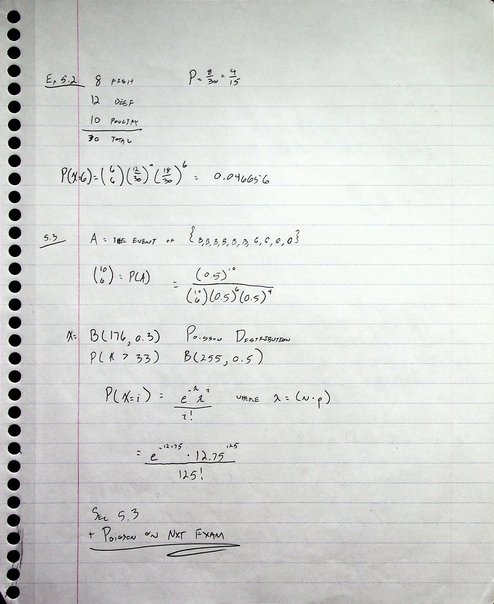 Ex 5.2 8 FISH P = 8/30 = 4/15
12 BEEF
10 POULTRY
30 TOTAL
P(X=6) = (6 6) (12/30)^0 (18/30)^6 = 0.046656
5.3 A = THE EVENT OF
(10 6) = P(A) = (0.5)^10 / (10 6)(0.5)^6(0.5)^4
X = B(176, 0.3) POISSON DISTRIBUTION
P(X > 33) B(255, 0.5)
P(X=i) = e^-λ λ^i / i! WHERE λ = (N·p)
= e^-12.75 · 12.75^125 / 125!
SEC 5.3
+ POISSON ON NXT EXAM